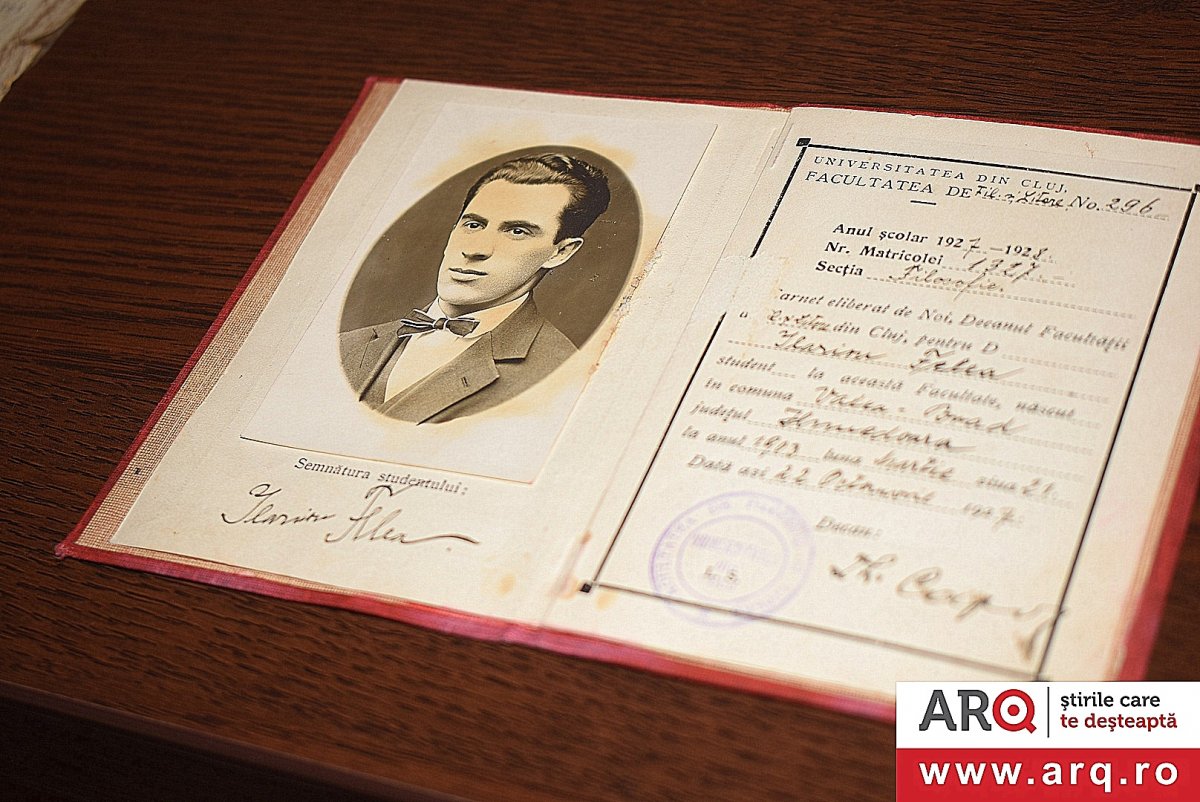 Semnătura studentului:
Ilarion Felea
UNIVERSITATEA DIN CLUJ,
FACULTATEA DE Fil. și Litere No. 296
Anul școlar 1927–1928.
Nr. Matricolei 1327
Secția Filosofie.
arnet eliberat de Noi, Decanul Facultății
din Cluj, pentru D
Ilarion Felea
student la această Facultate, născut
în comuna Valea-Brad
județul Hunedoara
la anul 1903 luna Martie ziua 21.
Dată azi 22 Octomvrie 1927.
Decan:
ARQ
știrile care
te deșteaptă
www.arq.ro